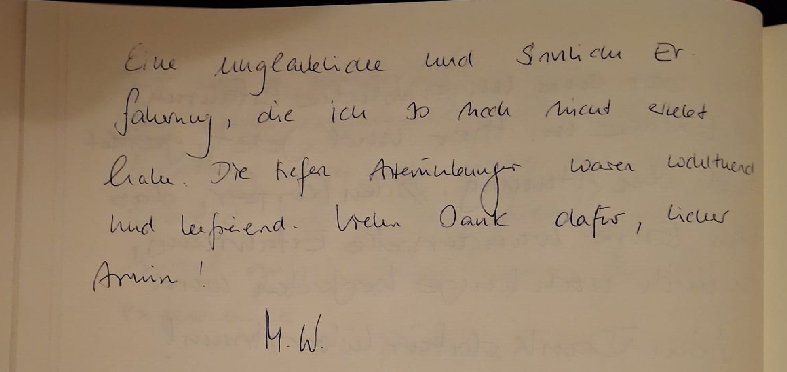 Eine unglaubliche und sinnliche Er
fahrung, die ich so noch nicht erlebt
habe. Die tiefen Atemübungen waren wohltuend
und befreiend. Vielen Dank dafür, lieber
Armin!
M.W.